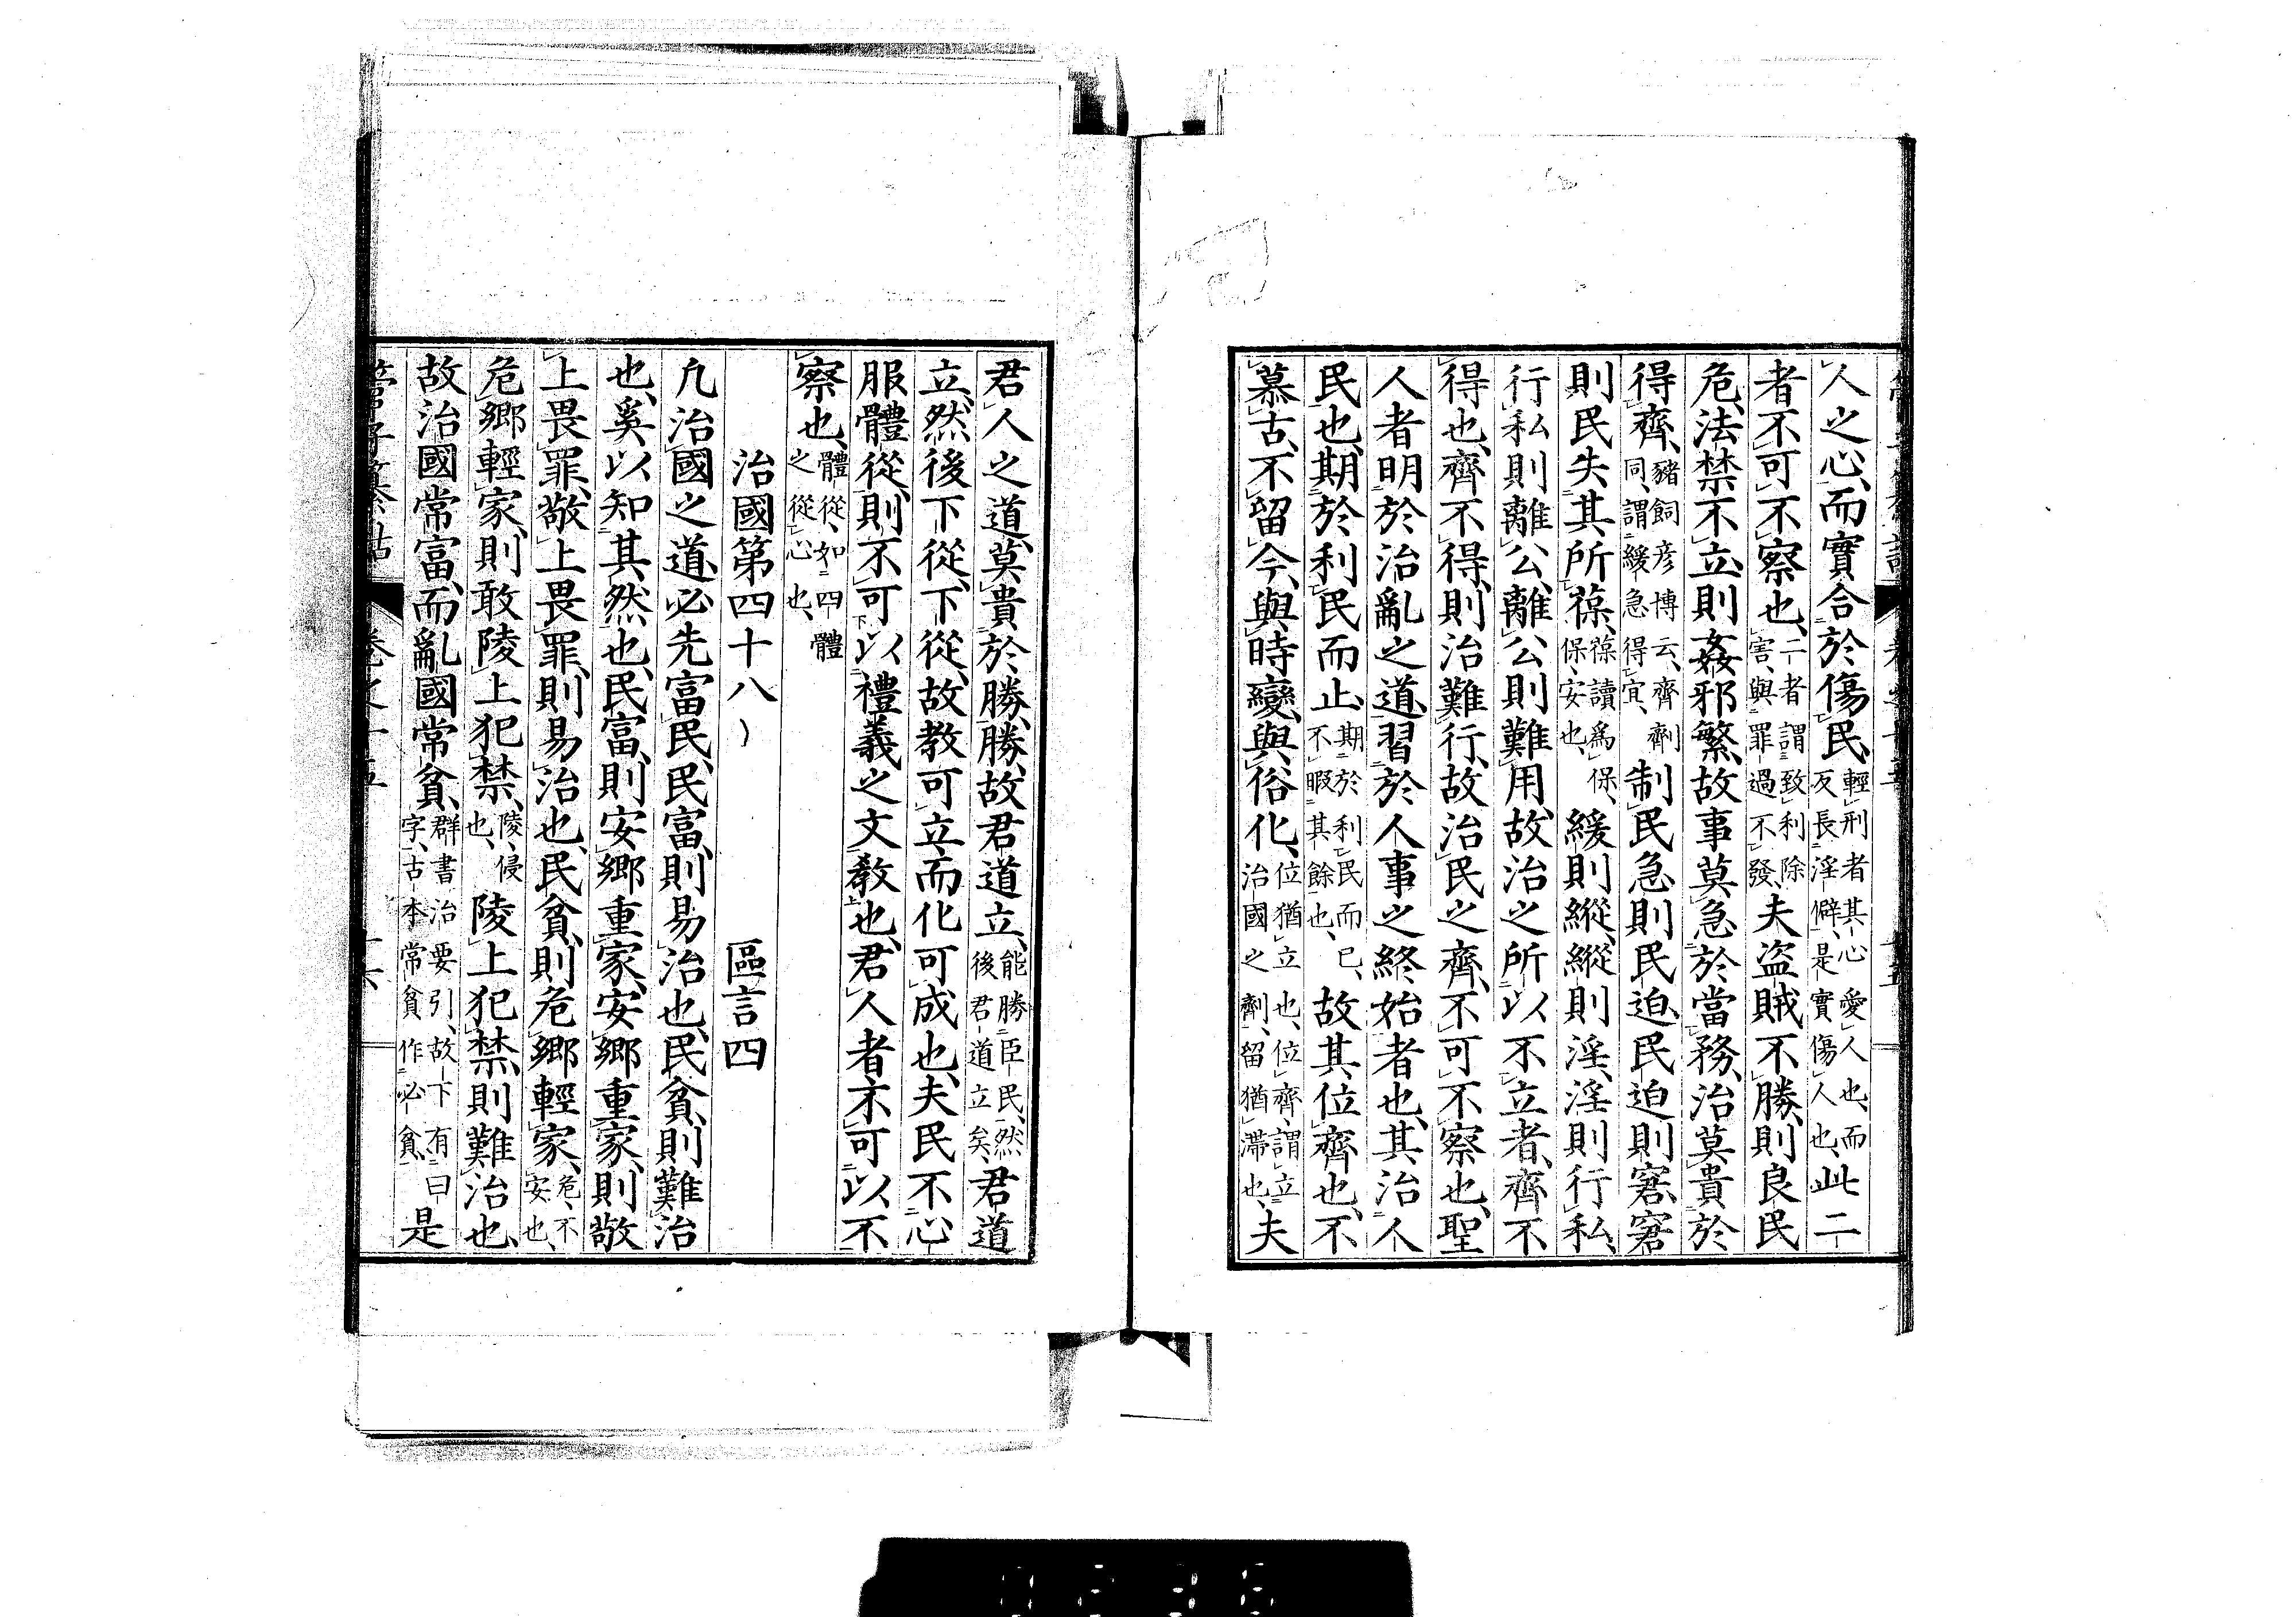 人之心、而實合於傷民、輕刑者其心愛人也、而反長淫僻、是實傷人也、此二
者不可不察也、二者謂致利除害、與罪過不發、夫盜賊不勝、則良民
危、法禁不立、則姦邪繁、故事莫急於當務、治莫貴於
得齊、豬飼彥博云、齊劑同、謂緩急得宜、制民急則民迫、民迫則窘、窘
則民失其所葆、葆讀爲保、保、安也、緩則縱、縱則淫、淫則行私、
行私則離公、離公則難用、故治之所以不立者、齊不
得也、齊不得、則治難行、故治民之齊、不可不察也、聖
人者明於治亂之道、習於人事之終始者也、其治人
民也、期於利民而止、期於利民而已、不暇其餘也、故其位齊也、不
慕古、不留今、與時變、與俗化、位猶立也、位齊、謂立治國之劑、留猶滯也、夫
君人之道、莫貴於勝、勝、故君道立、能勝臣民、然後君道立矣、君道
立、然後下從、下從、故教可立、而化可成也、夫民不心
服體從、則不可以禮義之文教也、君人者不可以不
察也、體從、如四體之從心也、
治國第四十八 區言四
凡治國之道、必先富民、民富、則易治也、民貧、則難治
也、奚以知其然也、民富、則安鄉重家、安鄉重家、則敬
上畏罪、敬上畏罪、則易治也、民貧、則危鄉輕家、危、不安也、
危鄉輕家、則敢陵上犯禁、陵、侵也、陵上犯禁、則難治也、
故治國常富、而亂國常貧、群書治要引、故下有曰字、古本常貧作必貧、是